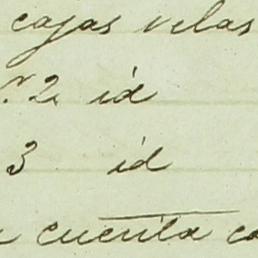 cajas velas
2 id
3 id
cuenta